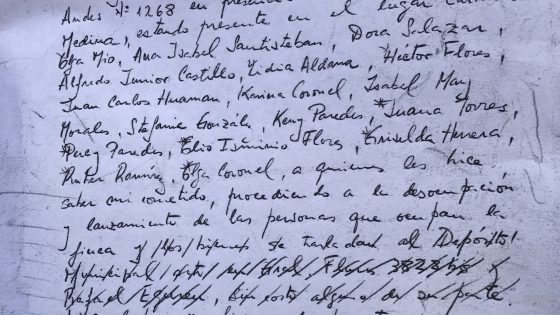 Andes Nº 1268 en presencia
Medina, estando presente en el lugar
Olga Mio, Ana Isabel Santisteban, Dora Salazar,
Alfredo Junior Castillo, Lidia Aldana, Héctor Flores,
Juan Carlos Huaman, Karina Coronel, Isabel May
Morales, Stefania Gonzáles, Keny Paredes, *Juana Torres,
*Percy Paredes, *Elio Isminio Flores, *Griselda Herrera,
*Ruben Ramirez, *Olga Coronel, a quienes les hice
saber mi cometido, procediendo a la desocupación
y lanzamiento de las personas que ocupan la
finca y los bienes se trasladan al Depósito
Municipal
Rafael sin costo alguno de su parte.